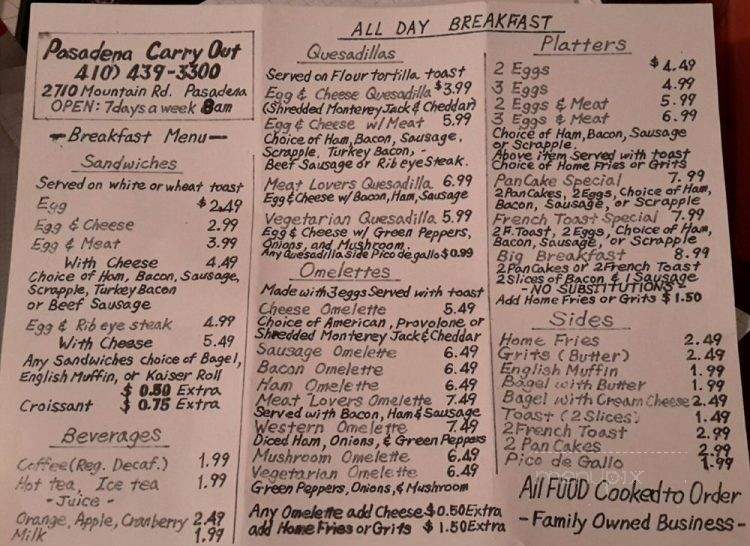 ALL DAY BREAKFAST
Pasadena Carry Out
410) 439-3300
2710 Mountain Rd. Pasadena
OPEN: 7days a week 8am
-Breakfast Menu-
Sandwiches
Served on white or wheat toast
Egg $2.49
Egg & Cheese 2.99
Egg & Meat 3.99
With Cheese 4.49
Choice of Ham, Bacon, Sausage,
Scrapple, Turkey Bacon
or Beef Sausage
Egg & Rib eye steak 4.99
With Cheese 5.49
Any Sandwiches choice of Bagel,
English Muffin, or Kaiser Roll
$ 0.50 Extra
Croissant $ 0.75 Extra
Beverages
Coffee (Reg. Decaf.) 1.99
Hot tea, Ice tea 1.99
- Juice -
Orange, Apple, Cranberry 2.49
Milk 1.99
Quesadillas
Served on Flour tortilla toast
Egg & Cheese Quesadilla $3.99
(Shredded Monterey Jack & Cheddar)
Egg & Cheese w/ Meat 5.99
Choice of Ham, Bacon, Sausage,
Scrapple, Turkey Bacon, -
Beef Sausage or Rib eye Steak.
Meat Lovers Quesadilla 6.99
Egg & Cheese w/ Bacon, Ham, Sausage
Vegetarian Quesadilla 5.99
Egg & Cheese w/ Green Peppers,
Onions, and Mushroom.
Any Quesadilla side Pico de gallo $0.99
Omelettes
Made with 3 eggs Served with toast
Cheese Omelette 5.49
Choice of American, Provolone or
Shredded Monterey Jack & Cheddar
Sausage Omelette 6.49
Bacon Omelette 6.49
Ham Omelette 6.49
Meat Lovers Omelette 7.49
Served with Bacon, Ham & Sausage
Western Omelette 7.49
Diced Ham, Onions, & Green Peppers
Mushroom Omelette 6.49
Vegetarian Omelette 6.49
Green Peppers, Onions, & Mushroom
Any Omelette add Cheese $0.50 Extra
add Home Fries or Grits $ 1.50 Extra
Platters
2 Eggs $4.49
3 Eggs 4.99
2 Eggs & Meat 5.99
3 Eggs & Meat 6.99
Choice of Ham, Bacon, Sausage
or Scrapple.
Above item Served with toast
Choice of Home Fries or Grits
PanCake Special 7.99
2 PanCakes, 2 Eggs, Choice of Ham,
Bacon, Sausage, or Scrapple
French Toast Special 7.99
2 F. Toast, 2 Eggs, Choice of Ham,
Bacon, Sausage, or Scrapple
Big Breakfast 8.99
2 PanCakes or 2 French Toast
2 Slices of Bacon & 1 Sausage
- NO SUBSTITUTIONS -
Add Home Fries or Grits $ 1.50
Sides
Home Fries 2.49
Grits (Butter) 2.49
English Muffin 1.99
Bagel with Butter 1.99
Bagel with Cream Cheese 2.49
Toast (2 Slices) 1.49
2 French Toast 2.99
2 Pan Cakes 2.99
Pico de Gallo 1.99
menupix
All FOOD Cooked to Order
- Family Owned Business -